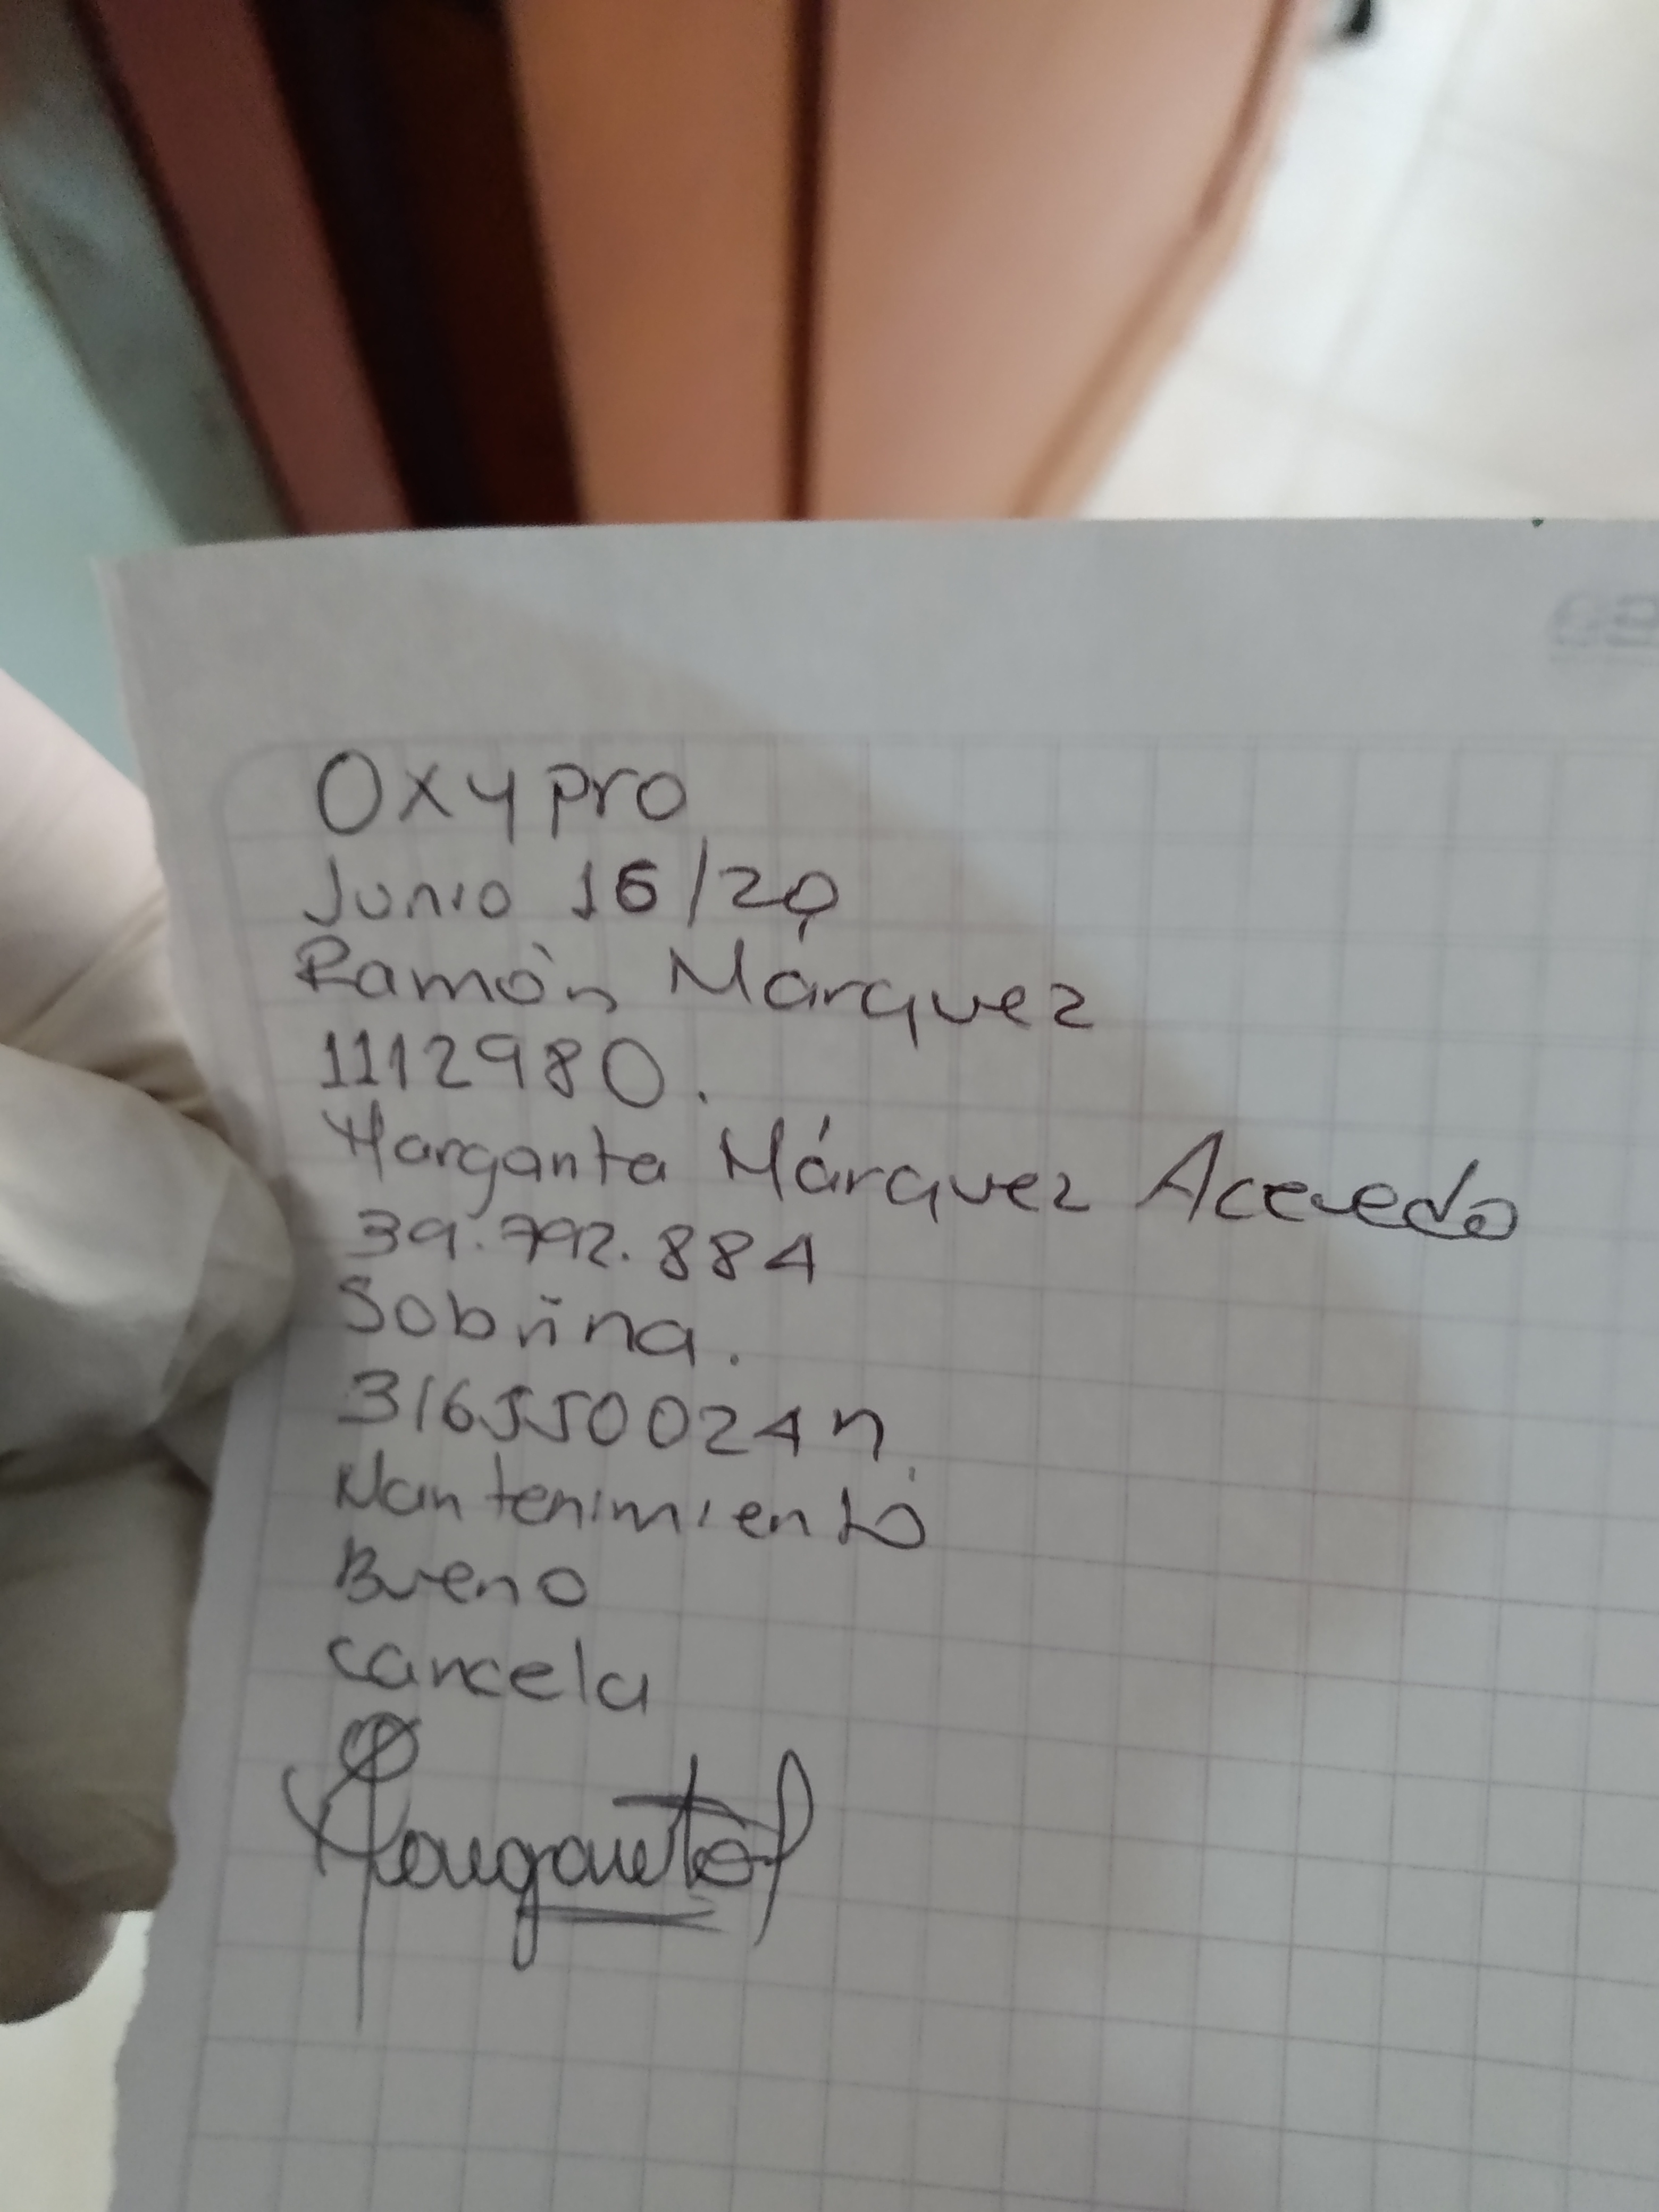 Oxypro
Junio 16/20
Ramón Márquez
1112980.
Margarita Márquez Acevedo
39.792.884
Sobrina.
3165500247
Mantenimiento
Bueno
cancela